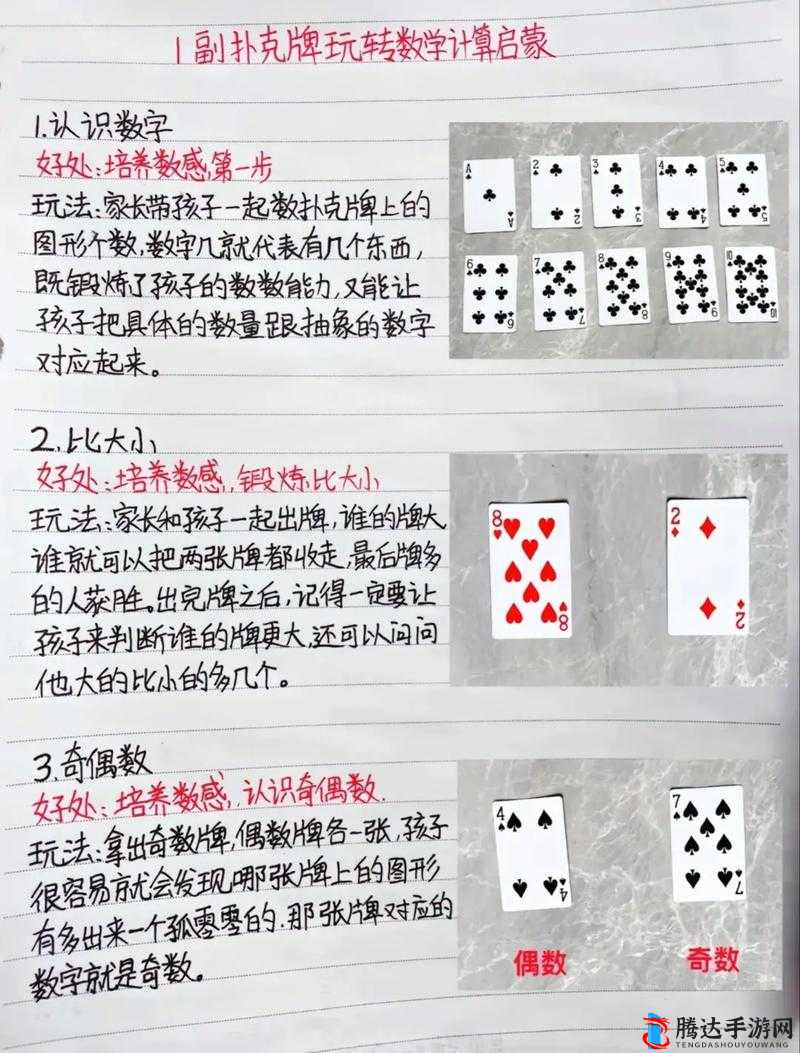 1副扑克牌玩转数学计算启蒙
1.认识数字
好处:培养数感第一步
玩法:家长带孩子一起数扑克牌上的
图形个数,数字几就代表有几个东西,
既锻炼了孩子的数数能力,又能让
孩子把具体的数量跟抽象的数字
对应起来。
A 2 3 4 5
A 2 3 4 5
6 7 8 9 10
6 7 8 9 10
2.比大小
好处:培养数感,锻炼比大小
玩法:家长和孩子一起出牌,谁的牌大
谁就可以把两张牌都收走,最后牌多
的人获胜。出完牌之后,记得一定要让
孩子来判断谁的牌更大,还可以问问
他大的比小的多几个。
8 2
8 2
3.奇偶数
好处:培养数感,认识奇偶数.
玩法:拿出奇数牌,偶数牌各一张,孩子
很容易就会发现哪张牌上的图形
有多出来一个孤零零的.那张牌对应的
数字就是奇数。
4 7
4 7
偶数 奇数
腾达手游网
TENGDASHOUYOUWANG